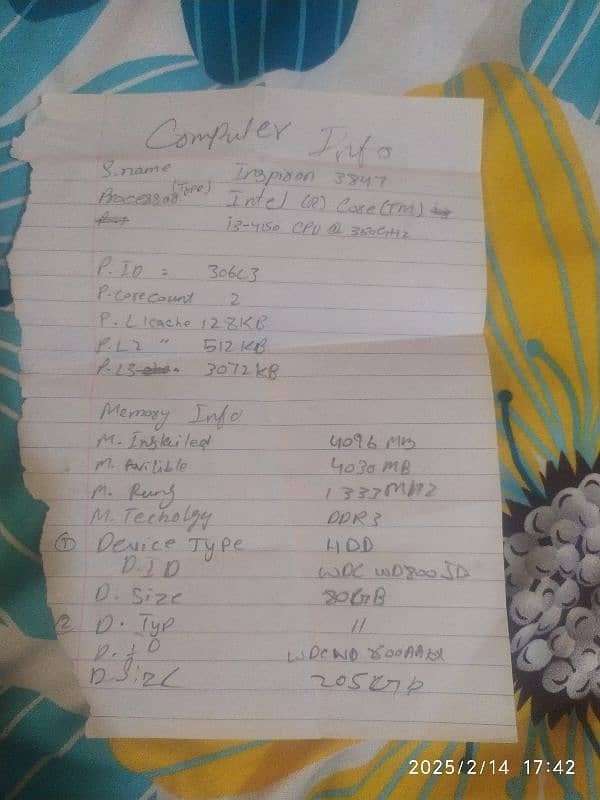 Computer Info
S.name Inspison 3847
Processor (Type) Intel (R) Core(TM)
i3-4150 CPU @ 350GHz
P. ID = 306C3
P.Core Count 2
P. L1 cache 128KB
P. L2 " 512KB
P. L3 3072KB
Memory Info
M. Inskiled 4096 MB
M. Avilible 4030 MB
M. Rung 1333MHz
M. Techolgy DDR3
① Device Type HDD
D. ID WDC WD800JD
D. Size 80GB
② D. Typ "
D. ID WDCWD
D. Size
2025/2/14 17:42